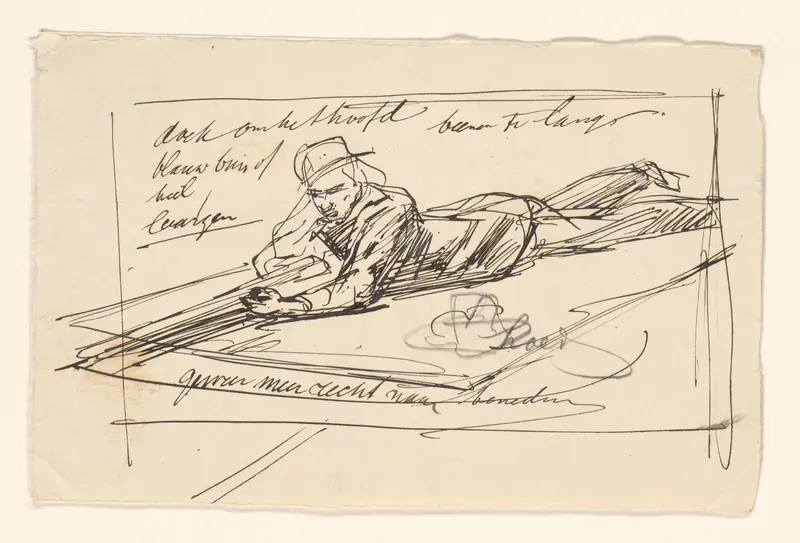 doek om het hoofd
beenen te lang
blauw buis of
kiel
laarzen
hoed
geweer meer recht naar beneden